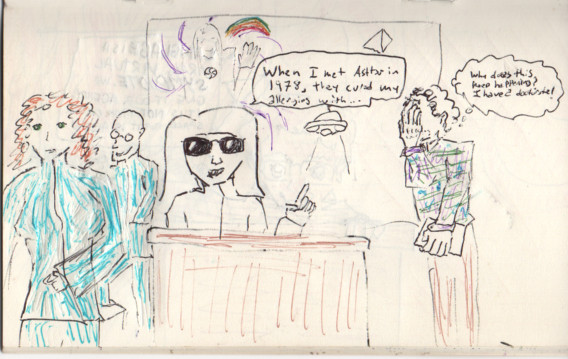 When I met Ashtar in
1978, they cured my
allergies with...
Why does this
keep happening?
I have a doctorate!